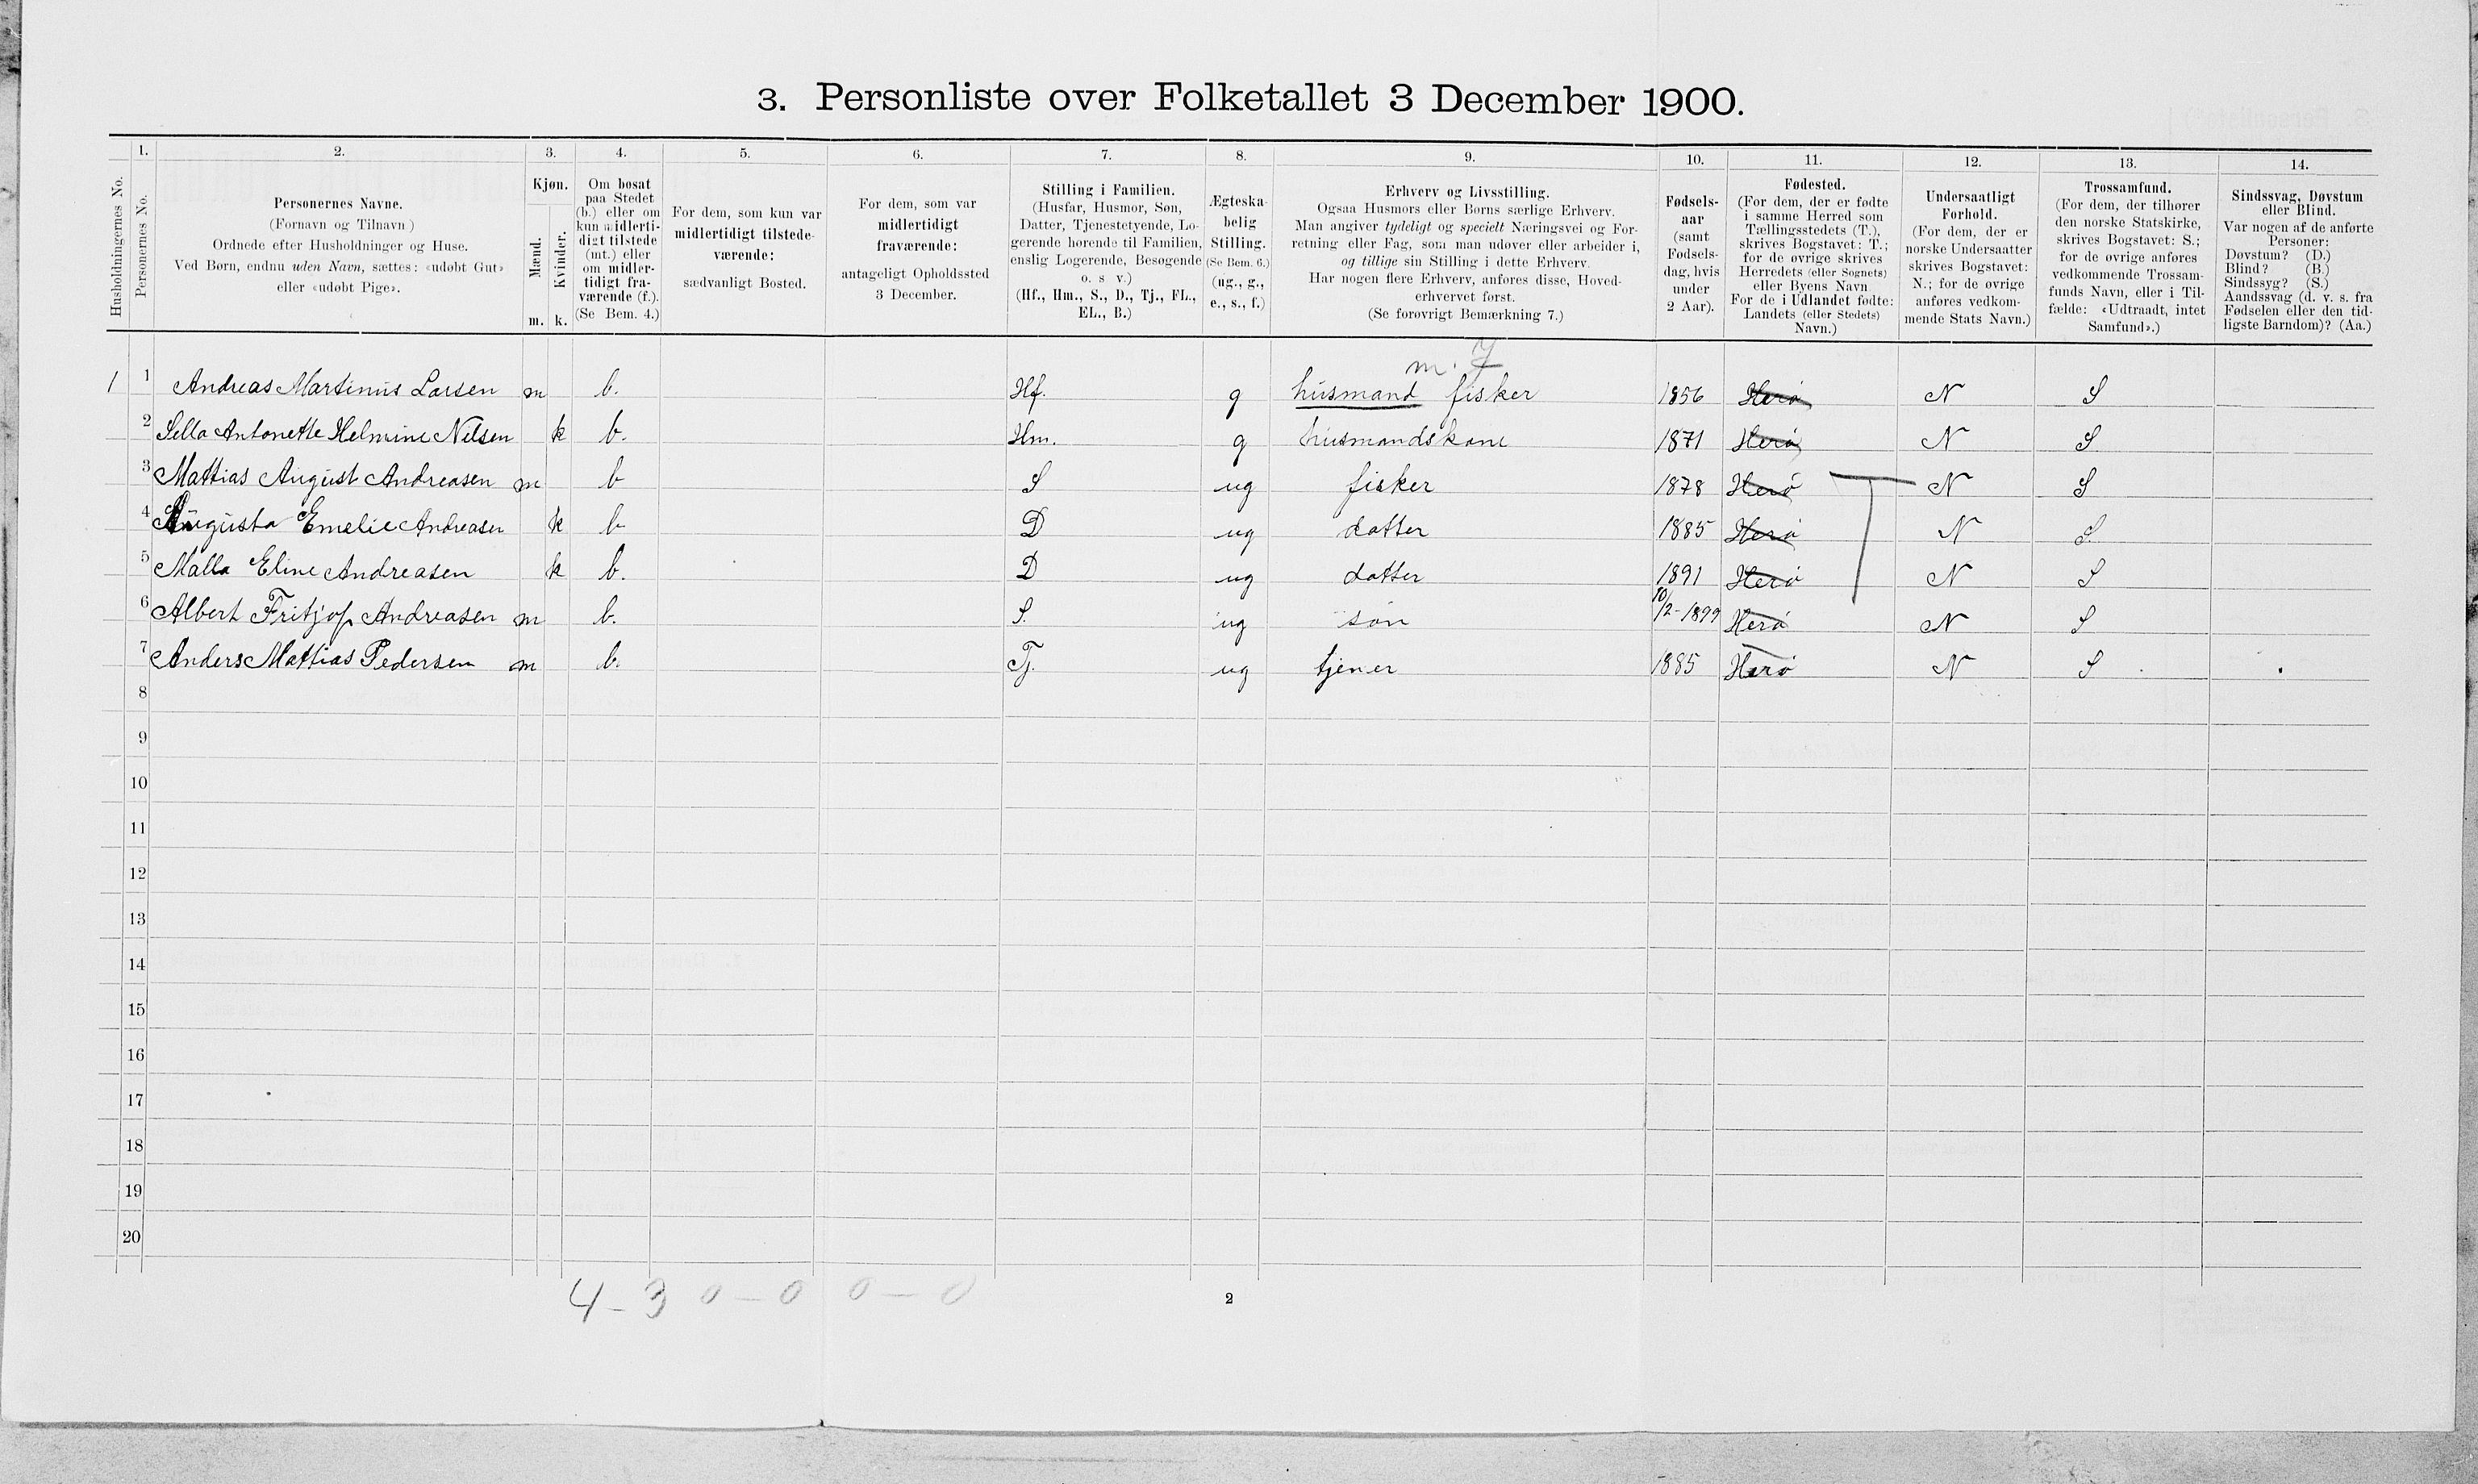 3. Personliste over Folketallet 3 December 1900.
1. 2. 3. 4. 5. 6. 7. 8. 9. 10. 11. 12. 13. 14.
Husholdningernes No.
Personernes No.
Personernes Navne.
(Fornavn og Tilnavn)
Ordnede efter Husholdninger og Huse.
Ved Børn, endnu uden Navn, sættes: «udøbt Gut»
eller «udøbt Pige».
Kjøn.
Mænd.
Kvinder.
m. k.
Om bosat
paa Stedet
(b.) eller om
kun midlerti-
digt tilstede
(mt.) eller
om midler-
tidigt fra-
værende (f.).
(Se Bem. 4.)
For dem, som kun var
midlertidigt tilstede-
værende:
sædvanligt Bosted.
For dem, som var
midlertidigt
fraværende:
antageligt Opholdssted
3 December.
Stilling i Familien.
(Husfar, Husmor, Søn,
Datter, Tjenestetyende, Lo-
gerende hørende til Familien,
enslig Logerende, Besøgende
o. s v.)
(Hf., Hm., S., D., Tj., FL.,
EL., B.)
Ægteska-
belig
Stilling.
(Se Bem. 6.)
(ug., g.,
e., s., f.)
Erhverv og Livsstilling.
Ogsaa Husmors eller Børns særlige Erhverv.
Man angiver tydeligt og specielt Næringsvei og For-
retning eller Fag, som man udøver eller arbeider i,
og tillige sin Stilling i dette Erhverv.
Har nogen flere Erhverv, anføres disse, Hoved-
erhvervet først.
(Se forøvrigt Bemærkning 7.)
Fødsels-
aar
(samt
Fødsels-
dag, hvis
under
2 Aar).
Fødested.
(For dem, der er fødte
i samme Herred som
Tællingsstedets (T.),
skrives Bogstavet: T.;
for de øvrige skrives
Herredets (eller Sognets)
eller Byens Navn
For de i Udlandet fødte:
Landets (eller Stedets)
Navn.)
Undersaatligt
Forhold.
(For dem, der er
norske Undersaatter
skrives Bogstavet:
N.; for de øvrige
anføres vedkom-
mende Stats Navn.)
Trossamfund.
(For dem, der tilhører
den norske Statskirke,
skrives Bogstavet: S.;
for de øvrige anføres
vedkommende Trossam-
funds Navn, eller i Til-
fælde: «Udtraadt, intet
Samfund».)
Sindssvag, Døvstum
eller Blind.
Var nogen af de anførte
Personer:
Døvstum? (D.)
Blind? (B.)
Sindssyg? (S.)
Aandssvag (d. v. s. fra
Fødselen eller den tid-
ligste Barndom)? (Aa.)
m. J
1 1 Andreas Martinus Larsen m b. Hf. g husmand fisker 1856 Herø N S
2 Sella Antonette Helmine Nilsen k b. Hm. g husmandskone 1871 Herø N S.
3 Mattias August Andreasen m b S ug fisker 1878 Herø T N S
4 Augusta Emelie Andreasen k b D ug datter 1885 Herø N S.
5 Malla Eline Andreasen k b. D ug datter 1891 Herø N S
6 Albert Fritjof Andreasen m b. S. ug søn 10/2-1899 Herø N S
7 Anders Mattias Pedersen m b. Tj. ug tjener 1885 Herø N S
8
9
10
11
12
13
14
15
16
17
18
19
20
4-3 0-0 0-0
2